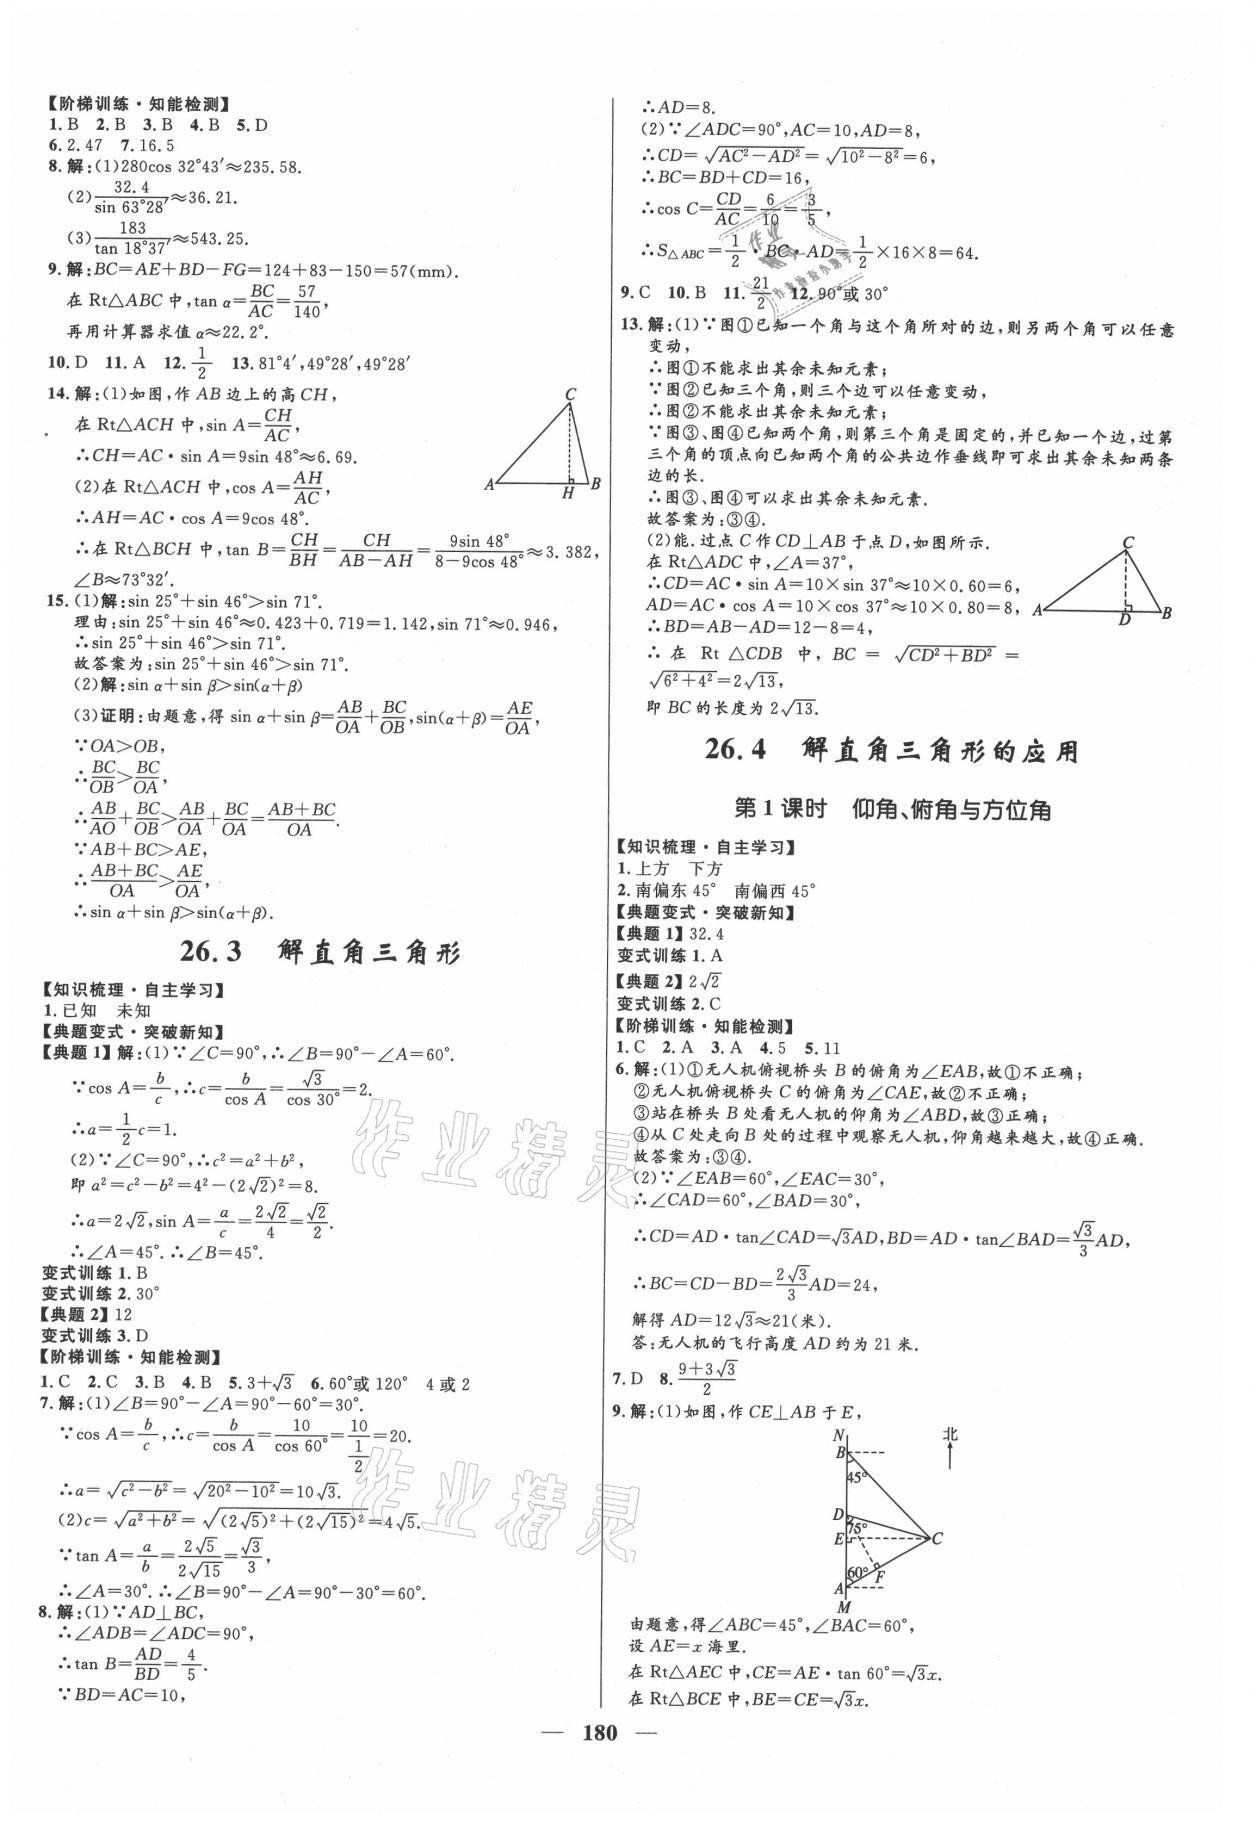 【阶梯训练·知能检测】
1.B 2.B 3.B 4.B 5.D
6.2.47 7.16.5
8.解:(1)280cos 32°43′≈235.58.
(2)32.4/sin 63°28′≈36.21.
(3)183/tan 18°37′≈543.25.
9.解:BC=AE+BD-FG=124+83-150=57(mm).
在 Rt△ABC 中,tan α=BC/AC=57/140,
再用计算器求值 α≈22.2°.
10.D 11.A 12.1/2 13.81°4′,49°28′,49°28′
14.解:(1)如图,作 AB 边上的高 CH,
在 Rt△ACH 中,sin A=CH/AC,
∴CH=AC·sin A=9sin 48°≈6.69.
(2)在 Rt△ACH 中,cos A=AH/AC,
∴AH=AC·cos A=9cos 48°.
∴在 Rt△BCH 中,tan B=CH/BH=CH/(AB-AH)=9sin 48°/(8-9cos 48°)≈3.382,
∠B≈73°32′.
C
A H B
15.(1)解:sin 25°+sin 46°>sin 71°.
理由:sin 25°+sin 46°≈0.423+0.719=1.142,sin 71°≈0.946,
∴sin 25°+sin 46°>sin 71°.
故答案为:sin 25°+sin 46°>sin 71°.
(2)解:sin α+sin β>sin(α+β)
(3)证明:由题意,得 sin α+sin β=AB/OA+BC/OB,sin(α+β)=AE/OA,
∵OA>OB,
∴BC/OB>BC/OA,
∴AB/AO+BC/OB>AB/OA+BC/OA=(AB+BC)/OA.
∵AB+BC>AE,
∴(AB+BC)/OA>AE/OA,
∴sin α+sin β>sin(α+β).
26.3 解直角三角形
【知识梳理·自主学习】
1.已知 未知
【典题变式·突破新知】
【典题 1】解:(1)∵∠C=90°,∴∠B=90°-∠A=60°.
∵cos A=b/c,∴c=b/cos A=√3/cos 30°=2.
∴a=1/2c=1.
(2)∵∠C=90°,∴c²=a²+b²,
即 a²=c²-b²=4²-(2√2)²=8.
∴a=2√2,sin A=a/c=2√2/4=√2/2.
∴∠A=45°.∴∠B=45°.
变式训练 1.B
变式训练 2.30°
【典题 2】12
变式训练 3.D
【阶梯训练·知能检测】
1.C 2.C 3.B 4.B 5.3+√3 6.60°或 120° 4 或 2
7.解:(1)∠B=90°-∠A=90°-60°=30°.
∵cos A=b/c,∴c=b/cos A=10/cos 60°=10/(1/2)=20.
∴a=√(c²-b²)=√(20²-10²)=10√3.
(2)c=√(a²+b²)=√((2√5)²+(2√15)²)=4√5.
∵tan A=a/b=2√5/2√15=√3/3,
∴∠A=30°.∴∠B=90°-∠A=90°-30°=60°.
8.解:(1)∵AD⊥BC,
∴∠ADB=∠ADC=90°,
∴tan B=AD/BD=4/5.
∵BD=AC=10,
∴AD=8.
(2)∵∠ADC=90°,AC=10,AD=8,
∴CD=√(AC²-AD²)=√(10²-8²)=6,
∴BC=BD+CD=16,
∴cos C=CD/AC=6/10=3/5,
∴S△ABC=1/2·BC·AD=1/2×16×8=64.
9.C 10.B 11.21/2 12.90°或 30°
13.解:(1)∵图①已知一个角与这个角所对的边,则另两个角可以任意
变动,
∴图①不能求出其余未知元素;
∵图②已知三个角,则三个边可以任意变动,
∴图②不能求出其余未知元素;
∵图③、图④已知两个角,则第三个角是固定的,并已知一个边,过第
三个角的顶点向已知两个角的公共边作垂线即可求出其余未知两条
边的长.
∴图③、图④可以求出其余未知元素.
故答案为:③④.
(2)能.过点 C 作 CD⊥AB 于点 D,如图所示.
在 Rt△ADC 中,∠A=37°,
∴CD=AC·sin A=10×sin 37°≈10×0.60=6,
AD=AC·cos A=10×cos 37°≈10×0.80=8,
∴BD=AB-AD=12-8=4,
∴ 在 Rt △CDB 中, BC = √(CD²+BD²) =
√(6²+4²)=2√13,
即 BC 的长度为 2√13.
C
A D B
26.4 解直角三角形的应用
第 1 课时 仰角、俯角与方位角
【知识梳理·自主学习】
1.上方 下方
2.南偏东 45° 南偏西 45°
【典题变式·突破新知】
【典题 1】32.4
变式训练 1.A
【典题 2】2√2
变式训练 2.C
【阶梯训练·知能检测】
1.C 2.A 3.A 4.5 5.11
6.解:(1)①无人机俯视桥头 B 的俯角为∠EAB,故①不正确;
②无人机俯视桥头 C 的俯角为∠CAE,故②不正确;
③站在桥头 B 处看无人机的仰角为∠ABD,故③正确;
④从 C 处走向 B 处的过程中观察无人机,仰角越来越大,故④正确.
故答案为:③④.
(2)∵∠EAB=60°,∠EAC=30°,
∴∠CAD=60°,∠BAD=30°,
∴CD=AD·tan∠CAD=√3AD,BD=AD·tan∠BAD=√3/3AD,
∴BC=CD-BD=2√3/3AD=24,
解得 AD=12√3≈21(米).
答:无人机的飞行高度 AD 约为 21 米.
7.D 8.(9+3√3)/2
9.解:(1)如图,作 CE⊥AB 于 E,
N
北
B
45°
D
75°
E C
60° F
A
M
由题意,得∠ABC=45°,∠BAC=60°,
设 AE=x 海里.
在 Rt△AEC 中,CE=AE·tan 60°=√3x.
在 Rt△BCE 中,BE=CE=√3x.
— 180 —
作业精灵
作业精灵